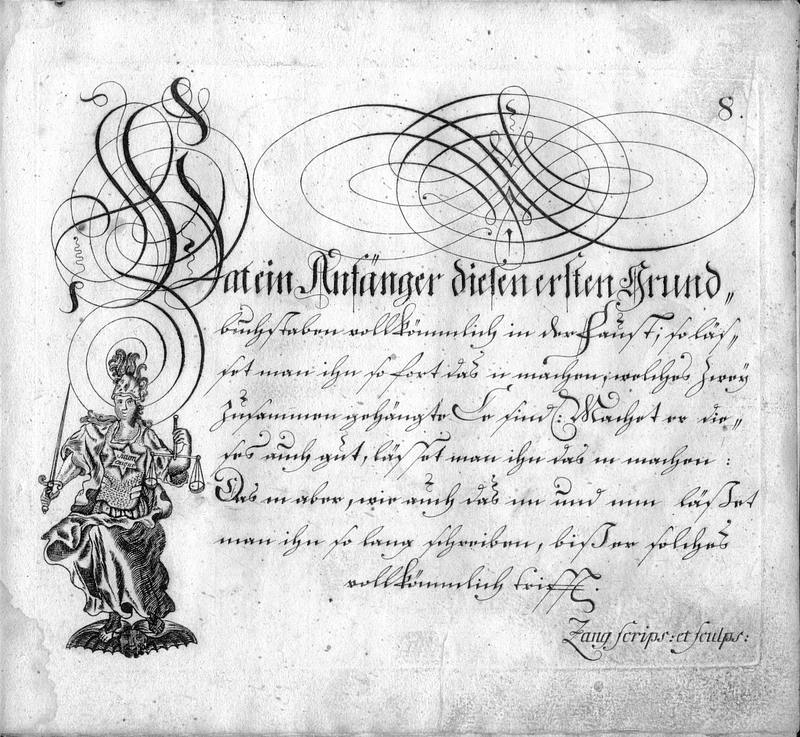 8.
Hat ein Anfänger diesen ersten Grund„
buchstaben vollkömmlich in der Faust; so läs„
set man ihn so fort das n machen; welches zwey
zusammen gehängte C c sind: Machet er die„
ses auch gut, läs set man ihn das m machen:
Das m aber, wie auch das nn und mm läßet
man ihn so lang schreiben, biß er solches
vollkömmlich trifft.
Zang scrips: et sculps: